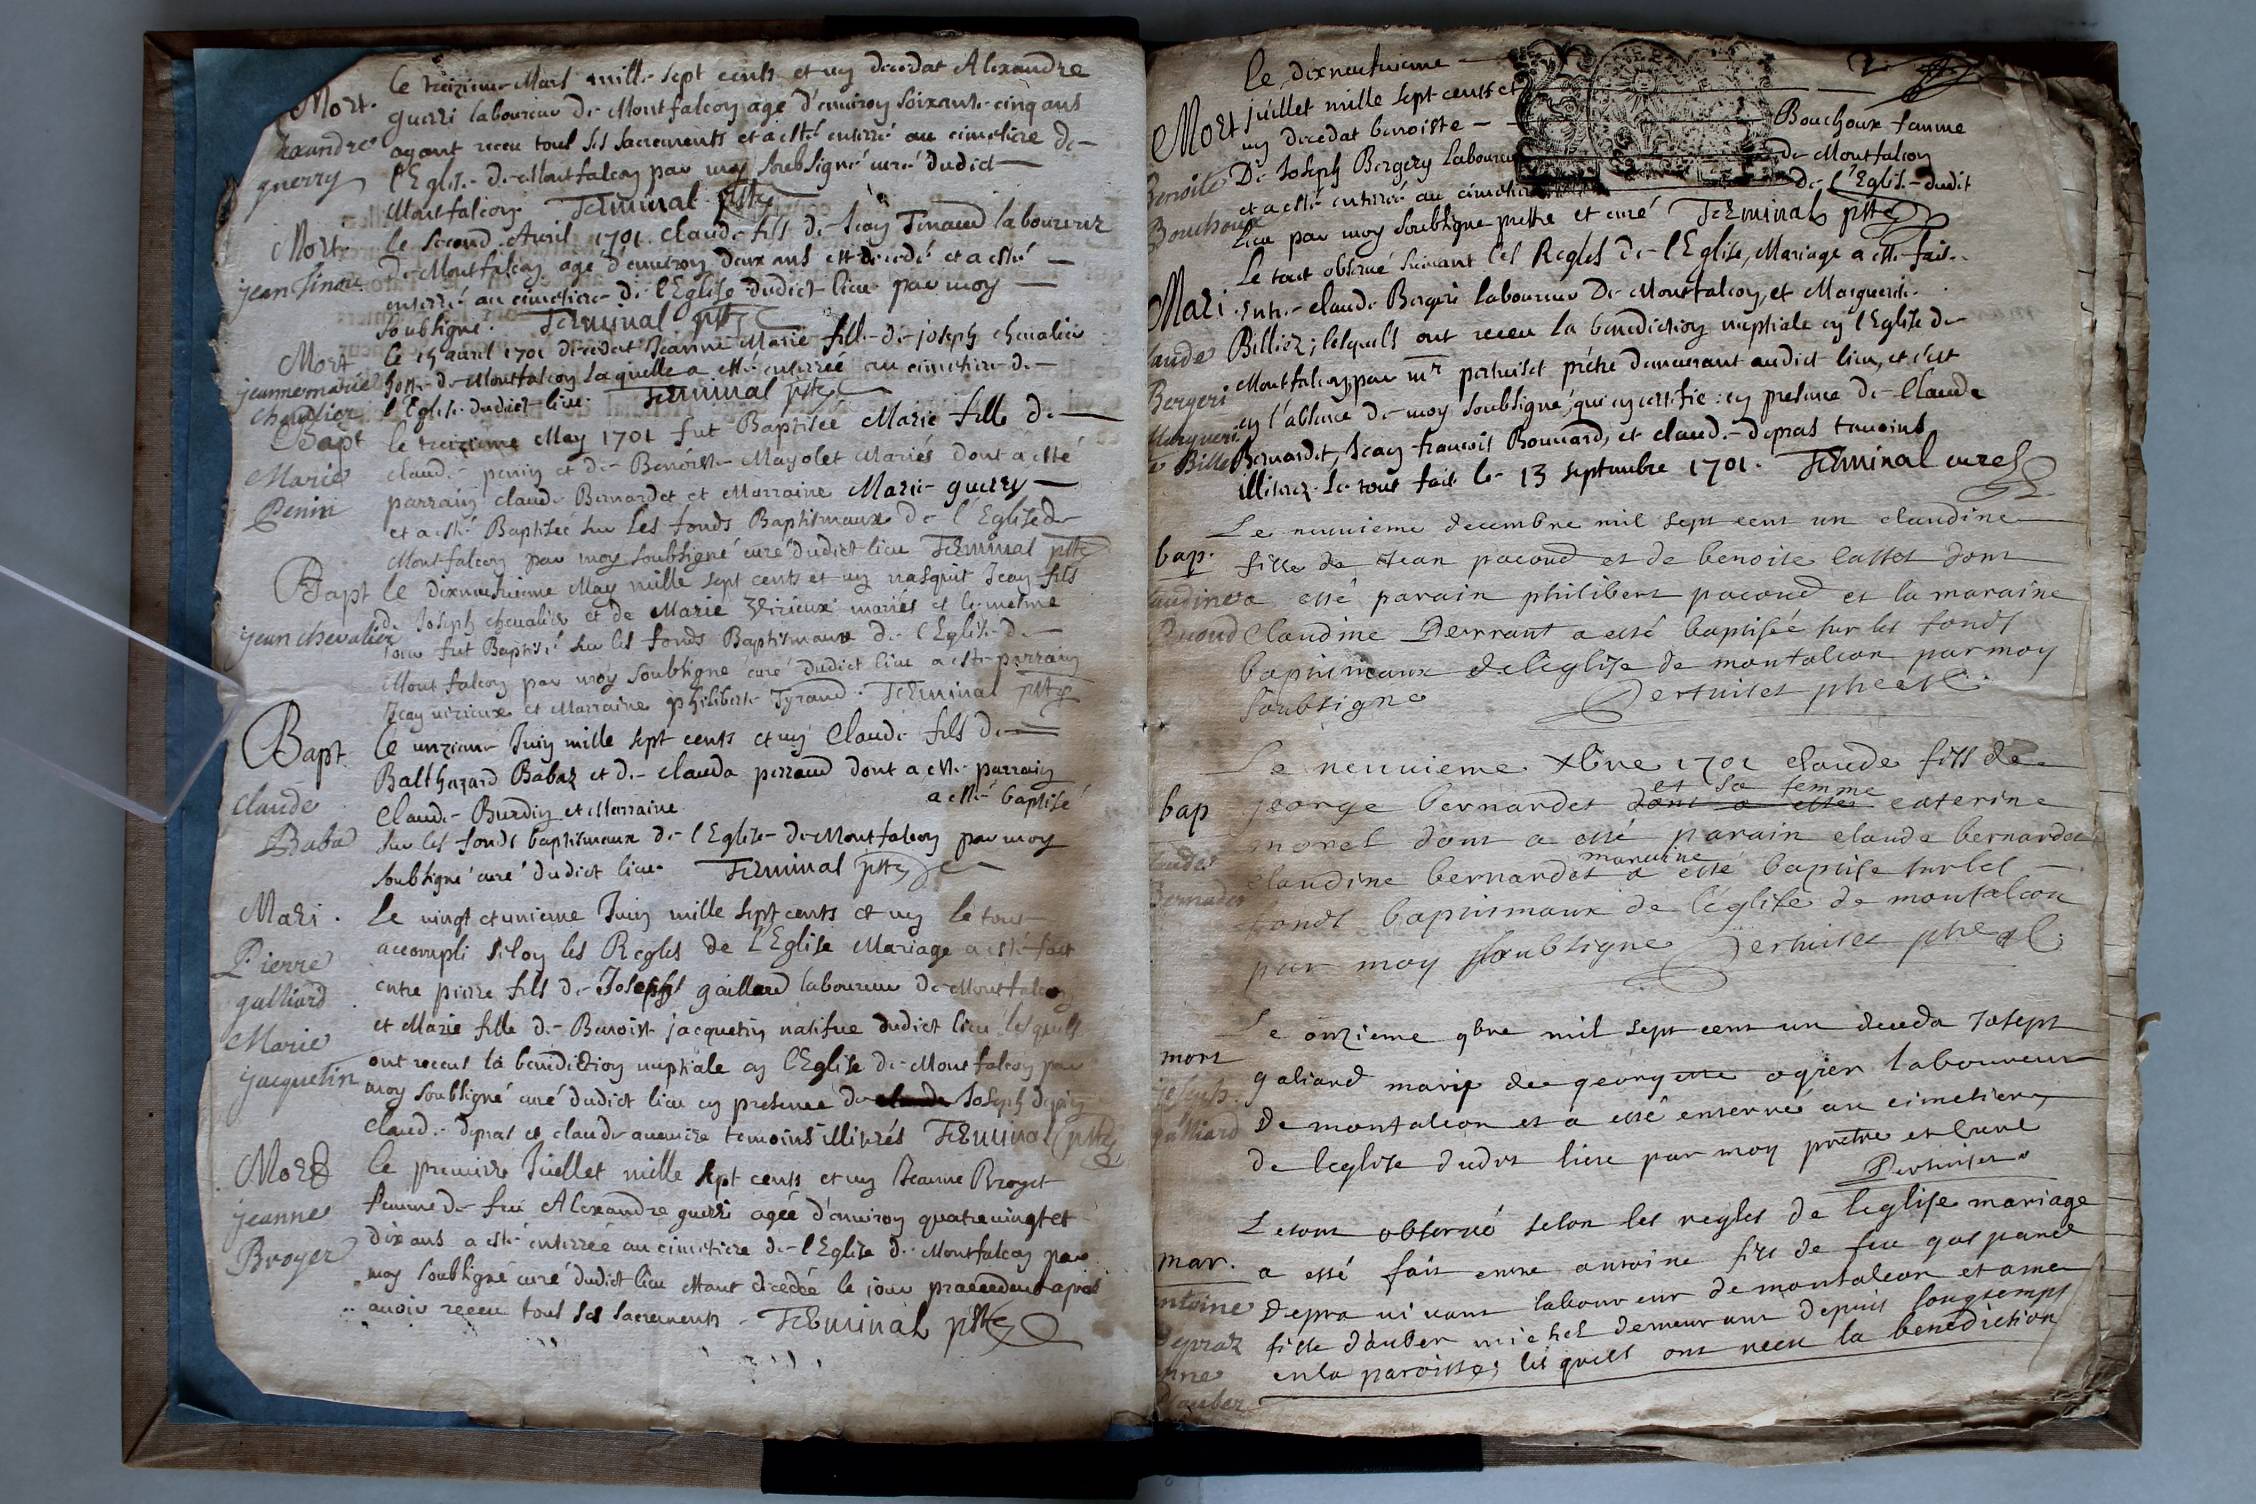 Mort. le treizieme Mars mille sept cents et un decedat Alexandre
guerri laboureur de Montfalcon agé d'environ soixante cinq ans
ayant receu tous ses sacrements et a esté enterré au cimetiere de
l'Eglise de Montfalcon par moy soubsigné curé dudict
Montfalcon. Terminal pstre
guerry
Mort. le second Avril 1701. claude fils de Jean Tinaud laboureur
de Montfalcon agé d'environ deux ans est decedé et a esté
enterré au cimetiere de l'Eglise dudict lieu par moy
soubsigné. Terminal pstre
jean
Mort le 15 avril 1701 decedat Jeanne Marie fille de joseph chevalier
hoste de Montfalcon laquelle a esté enterrée au cimetiere de
l'Eglise dudict lieu. Terminal pstre
jeanne marie
chevalier
Bapt le treizieme May 1701 fut Baptisée Marie fille de
claude penin et de Benoiste Mayolet Mariés dont a esté
parrain claude Bernardet et Marraine Marie guerry
et a esté Baptisée sur les fonds Baptismaux de l'Eglise de
Montfalcon par moy soubsigné curé dudict lieu Terminal pstre
Marie
Penin
Bapt le dixneufvieme May mille sept cents et un nasquit Jean fils
de Joseph chevalier et de Marie Virieux mariés et le mesme
jour fut Baptisé sur les fonds Baptismaux de l'Eglise de
Montfalcon par moy soubsigné curé dudict lieu a esté parrain
Jean virieux et Marraine philiberte Tyraud. Terminal pstre
jean chevalier
Bapt. le unzieme Juin mille sept cents et un Claude fils de
Balthazard Babaz et de clauda perraud dont a esté parrain
Claude Burdin et Marraine a esté baptisé
sur les fonds baptismaux de l'Eglise de Montfalcon par moy
soubsigné curé dudict lieu. Terminal pstre
claude
Baba
Mari. le vingt et unieme Juin mille sept cents et un le tout
accompli selon les Regles de l'Eglise Mariage a esté fait
entre pierre fils de Joseph gaillard laboureur de Montfalcon
et Marie fille de Benoist jacquetin natifve dudict lieu lesquels
ont receus la benediction nuptiale en l'Eglise de Montfalcon par
moy soubsigné curé dudict lieu en presence de Joseph
claude depras et claude temoins illitrés Terminal pstre
Pierre
galliard
Marie
jacquetin
Mort le premier Juillet mille sept cents et un Jeanne Broyet
femme de feu Alexandre guerri agée d'environ quatre vingt et
dix ans a esté enterrée au cimetiere de l'Eglise de Montfalcon par
moy soubsigné curé dudict lieu estant decedée le jour praecedent apres
avoir receu tous ses sacrements. Terminal pstre
jeanne
Broyer
2
Mort le dixneufvieme
juillet mille sept cents et
un decedat benoiste Bouchoux femme
De Joseph Bergery laboureur de Montfalcon
et a esté enterrée au cimetiere de l'Eglise dudit
lieu par moy soubsigne prestre et curé Terminal pstre
Benoite
Bouchoux
Le tout observé suivant les Regles de l'Eglise, Mariage a esté fait
Mari. Entre claude Bergeri laboureur De Montfalcon, et Marguerite
Billier; lesquels ont receu la benediction nuptiale en l'Eglise de
Montfalcon, par mr pertuiset prétre demeurant audict lieu, et c'est
en l'absence de moy soubsigné, qui en certifie: en presence de Claude
Bernardet, Jean francois Bouvard, et claude depras temoins
illiterez. le tout fait le 13 septembre 1701. Terminal curé
Bergeri
Le neuvieme decembre mil sept cent un claudine
bap. fille de Jean pacoud et de benoite cattet dont
a esté parain philibert pacoud et la maraine
Claudine Perrant a esté baptisée sur les fonds
baptismaux de leglise de montalcon par moy
soubsigne Pertuiset
Le neuvieme Xbre 1701 claude fils de
bap george bernardet dont a esté et sa femme caterine
morel dont a esté parain claude bernardet
claudine bernardet maraine a esté baptise sur les
fonds baptismaux de leglise de montalcon
par moy soubsigne Pertuiset
Le onzieme 9bre mil sept cent un deceda Josept
mort galiard marip de georgette ogier laboureur
De montalcon et a esté enterré au cimetiere
de leglise dudit lieu par moy pretre et curé
Pertuiset
galliard
Le tout observé selon les regles de leglise mariage
mar. a esté fait entre antoine fils de feu gaspard
Depra vivant laboureur de montalcon et anne
fille dauber michel demeurant depuis longtemps
en la paroisse; lesquels ont receu la benediction